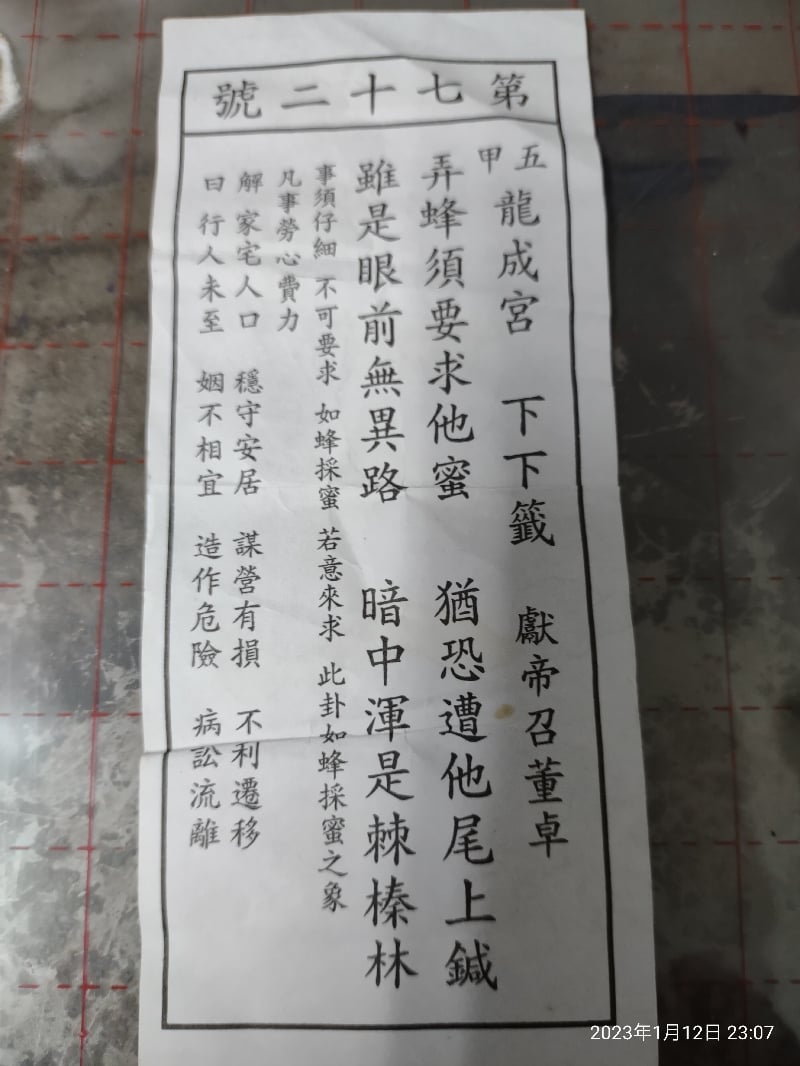 第七十二號
五龍成宮 下下籤 獻帝召董卓
甲
弄蜂須要求他蜜 猶恐遭他尾上鍼
雖是眼前無異路 暗中渾是棘榛林
事須仔細 不可要求 如蜂採蜜 若意來求 此卦如蜂採蜜之象
凡事勞心費力
解 家宅人口 穩守安居 謀營有損 不利遷移
曰 行人未至 姻不相宜 造作危險 病訟流離
2023年1月12日 23:07